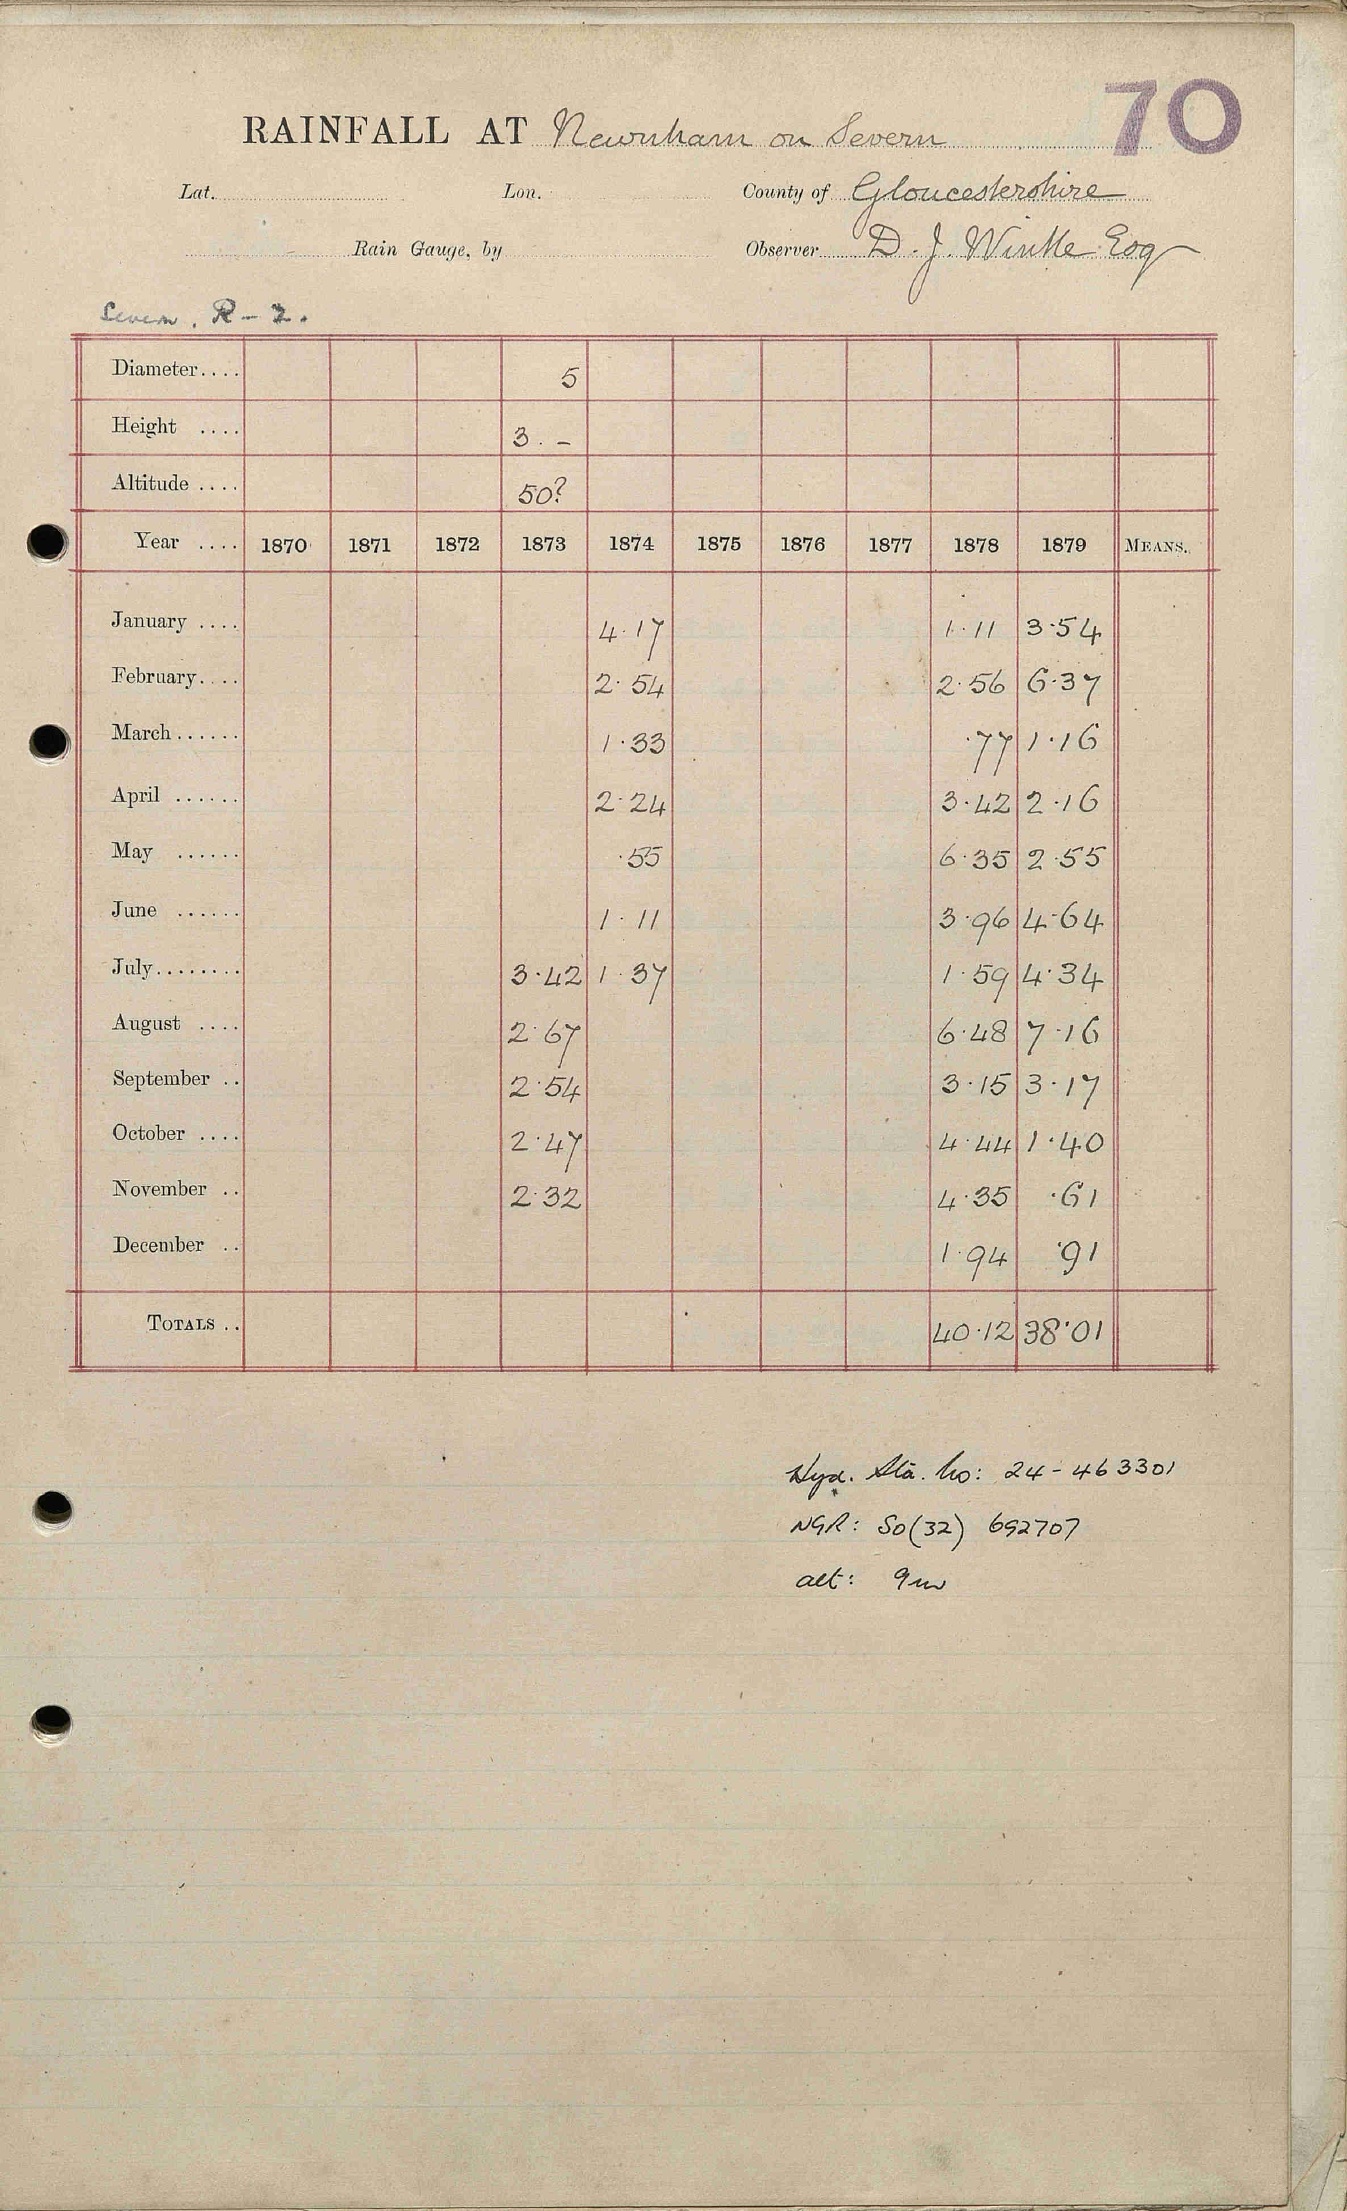 70
RAINFALL AT Newnham on Severn
Lat. Lon. County of Gloucestershire
Rain Gauge, by Observer D. J. Wintle Esq
Severn. R - 2.
Diameter.... 5
Height .... 3. -
Altitude .... 50?
Year .... 1870 1871 1872 1873 1874 1875 1876 1877 1878 1879 MEANS.
January .... 4.17 1.11 3.54
February.... 2.54 2.56 6.37
March...... 1.33 .77 1.16
April ...... 2.24 3.42 2.16
May ...... .55 6.35 2.55
June ...... 1.11 3.96 4.64
July........ 3.42 1.37 1.59 4.34
August .... 2.67 6.48 7.16
September .. 2.54 3.15 3.17
October .... 2.47 4.44 1.40
November .. 2.32 4.35 .61
December .. 1.94 .91
TOTALS .. 40.12 38.01
Hyd. Sta. No: 24-463301
NGR: SO(32) 692707
alt: 9m